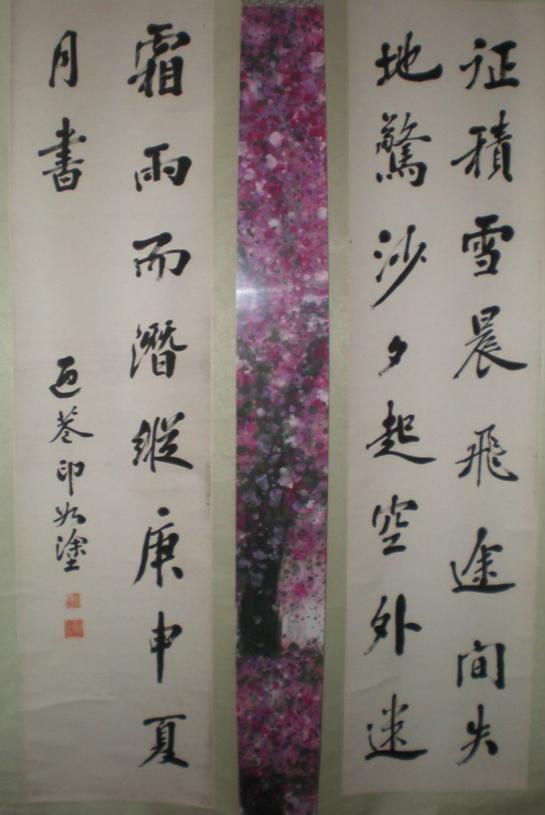 征積雪晨飛途間失
地驚沙夕起空外迷
霜雨而潛縱庚申夏
月書
印水塗